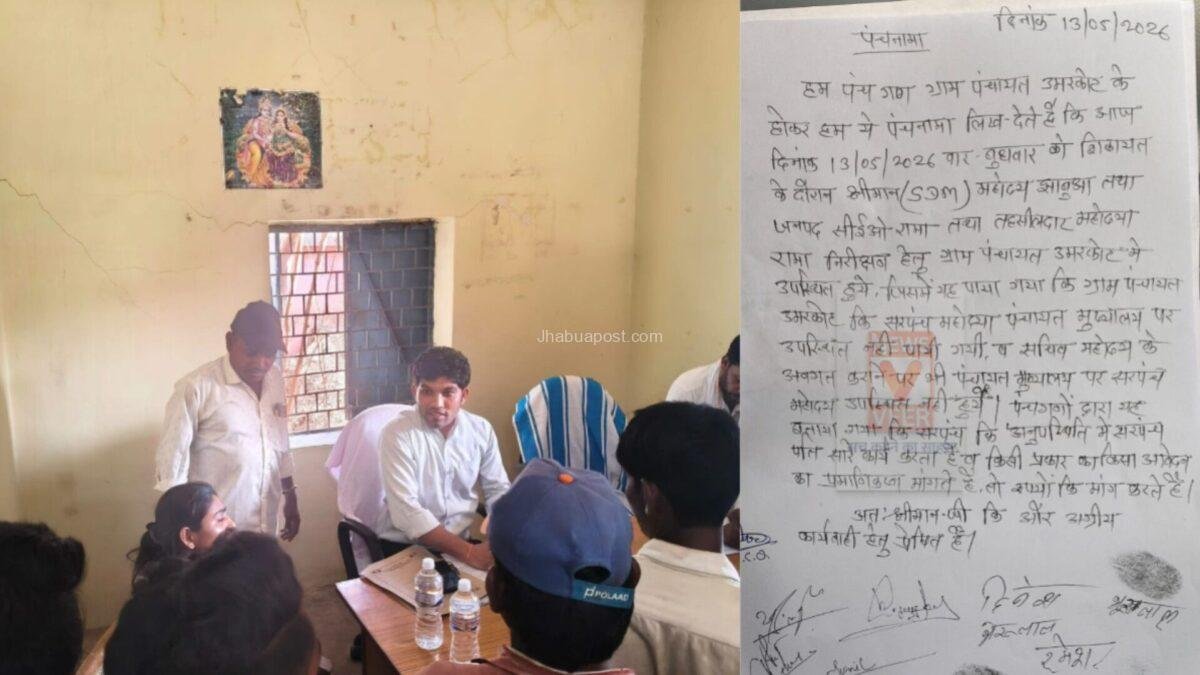 Jhabuapost.com
POLAAD
दिनांक 13/05/2026
पंचनामा
हम पंच गण ग्राम पंचायत उमरकोट के
होकर हम ये पंचनामा लिख देते है कि आज
दिनांक 13/05/2026 वार बुधवार को शिकायत
के दौरान श्रीमान (SDM) महोदय झाबुआ तथा
जनपद सीईओ रामा तथा तहसीलदार महोदया
रामा निरीक्षण हेतु ग्राम पंचायत उमरकोट मे
उपस्थित हुये, जिसमें यह पाया गया कि ग्राम पंचायत
उमरकोट कि सरपंच महोदया पंचायत मुख्यालय पर
उपस्थित नही पायी गयी, व सचिव महोदय के
अवगत कराने पर भी पंचायत मुख्यालय पर सरपंच
महोदय उपस्थित नही हुये। पंचगणों द्वारा यह
बताया गया कि सरपंच कि अनुपस्थिति मे सरपंच
पति सारे कार्य करता है व किसी प्रकार का
का प्रमाणिकता मांगते है, तो रुपयों कि मांग करते है।
अतः श्रीमान जी कि और अग्रीम
कार्यवाही हेतु प्रेषित है।
C.O.
दिनेश
रमेश